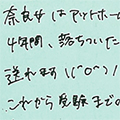 奈良女はアットホーム
4年間、落ちついた
送れます\(^O^)/
これから受験までの